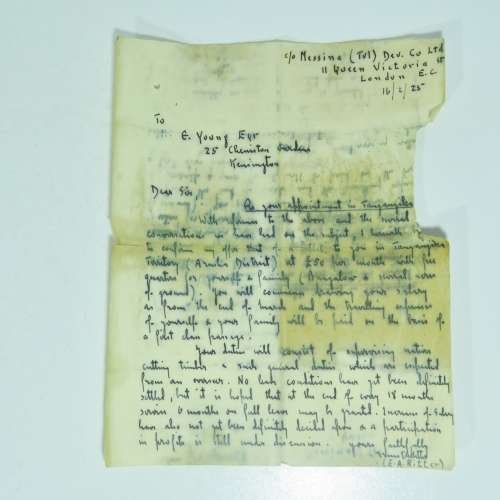 c/o Messina (Tvl) Dev. Co Ltd
11 Queen Victoria St
London E.C
16/2/25
To
E. Young Esqr
25 Cheniston Gardens
Kensington
Dear Sir,
Re your appointment in Tanganyika
With reference to the above and the several
conversations we have had on the subject, I
to confirm my offer that of to you in Tanganyika
Territory (Arusha District) at £50 per month with free
quarters for yourself & family (Bungalow & several acres
of ground). You will commence drawing your salary
as from the end of March and the travelling expenses
of yourself & your family will be paid on the basis of
a first class passage.
Your duties will consist of supervising native
cutting timber & such general duties which are expected
from an overseer. No leave conditions have yet been definitely
settled, but it is hoped that at the end of every 18 months
service 6 months on full leave may be granted. Increase of salary
have also not yet been definitely decided upon & a participation
in profits is still under discussion. Yours faithfully
(E.A. Ritter)